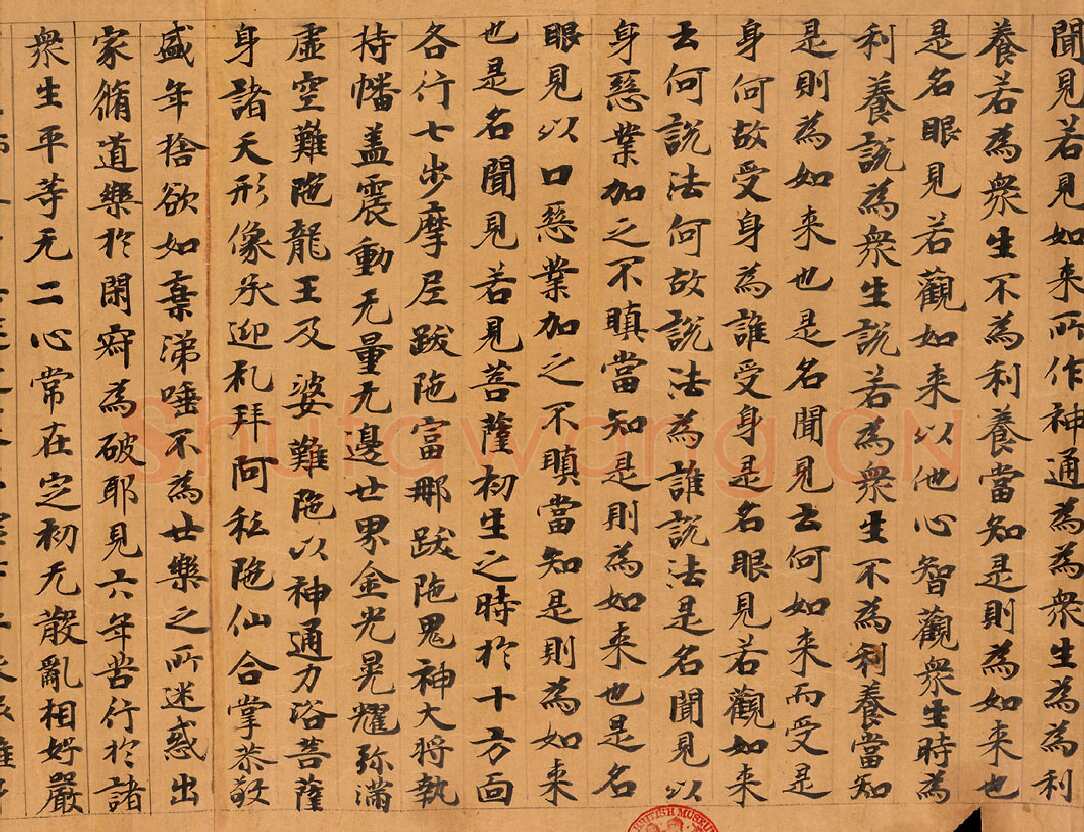 聞見若見如来所作神通為為衆生為為利
養若為衆生不為利養當知是則為如来也
是名眼見若觀如来以他心智觀衆生時為
利養說為衆生說若為衆生不為利養當知
是則為如来也是名聞見云何如来而受是
身何故受身為誰受身是名眼見若觀如来
云何說法何故說法為誰說法是名聞見以
身惡業加之不瞋當知是則為如来也是名
眼見以口惡業加之不瞋當知是則為如来
也是名聞見若見菩薩初生之時於十方面
各行七步摩尼跋陁富那跋陁鬼神大将執
持幡盖震動无量无邊世界金光晃耀弥滿
虚空難陁龍王及婆難陁以神通力浴菩薩
身諸天形像承迎礼拜阿私陁仙合掌恭敬
盛年捨欲如棄涕唾不為世樂之所迷惑出
家脩道樂於閑寂為破耶見六年苦行於諸
衆生平等无二心常在定初无散亂相好嚴
Shufawang.CN
BRITISH MUSEUM